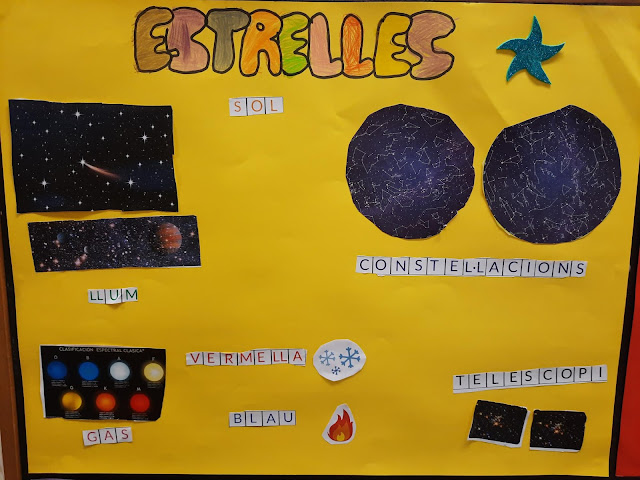 ESTRELLES
SOL
CONSTEL·LACIONS
LLUM
CLASIFICACIÓN ESPECTRAL CLÁSICA
O B A F
G K M
VERMELLA
TELESCOPI
BLAU
GAS